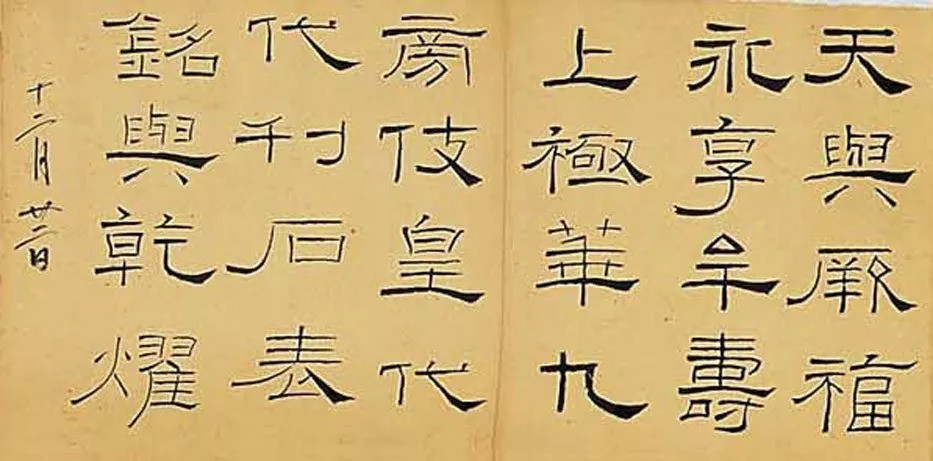 天與厥福
永享牟壽
上極華九
旁伎皇代
代刊石表
銘與乾燿
十二月廿二日